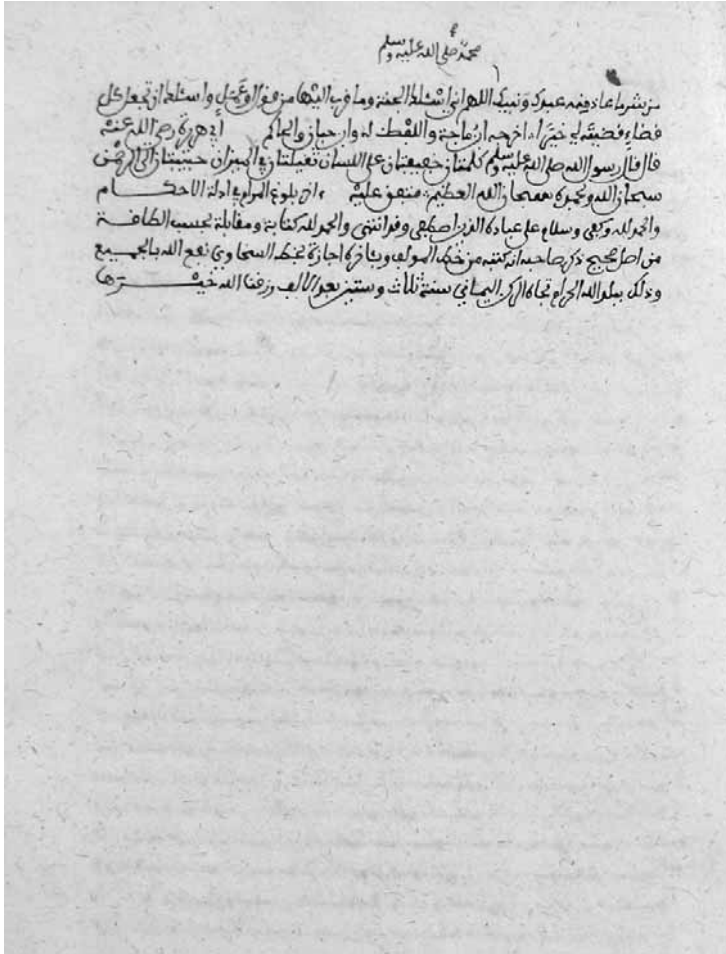 محمد صلى الله عليه وسلم
من شر ما عاذ منه عبدك ونبيك اللهم اني اسئلك الجنة وما قرب اليها من قول وعمل واسئلك ان تجعل كل
قضاء قضيته لي خيرا اخرجه ابن ماجة واللفظ له وابن حبان والحاكم ابي هريرة رضي الله عنه
قال قال رسول الله صلى الله عليه وسلم كلمتان خفيفتان على اللسان ثقيلتان في الميزان حبيبتان الى الرحمن
سبحان الله وبحمده سبحان الله العظيم متفق عليه بلوغ المرام في ادلة الاحكام
والحمد لله وكفى وسلام على عباده الذين اصطفى والحمد لله كتابة ومقابلة بحسب الطاقة
من اصل صحيح ذكر صاحبه انه كتبه من خط المولف اجازة بخط السخاوي نفع الله بالجميع
وذلك ببلد الله الحرام تجاه الركن اليماني سنة ثلاث وستين بعد الالف رزقنا الله خيرها